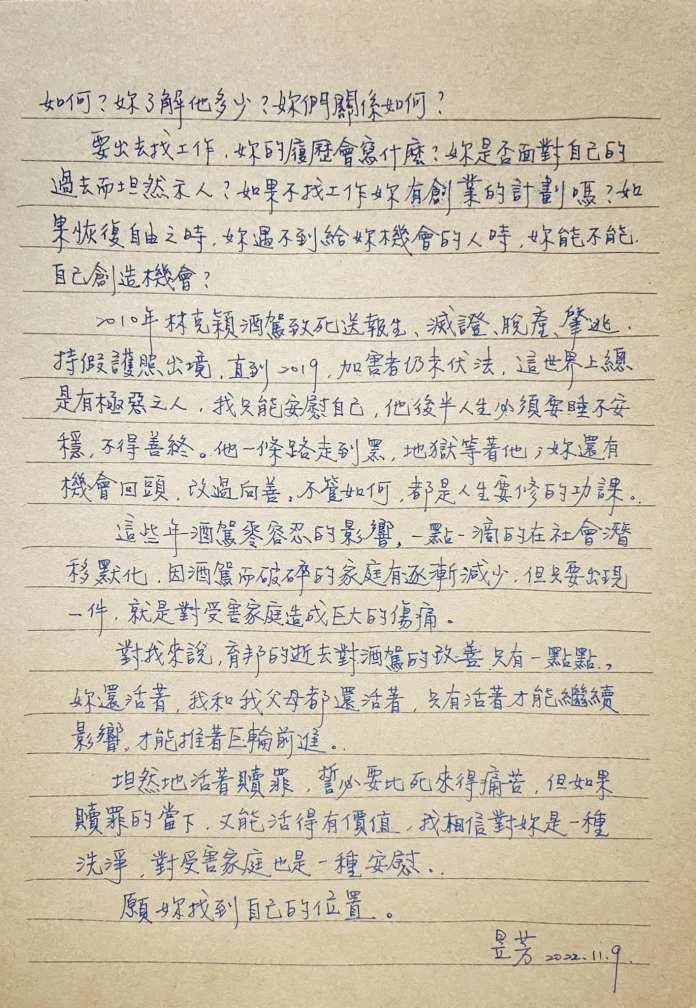 如何？妳了解他多少？妳們關係如何？
要出去找工作，妳的履歷會寫什麼？妳是否面對自己的
過去而坦然示人？如果不找工作妳有創業的計劃嗎？如
果恢復自由之時，妳遇不到給妳機會的人時，妳能不能
自己創造機會？
2010年林克穎酒駕致死送報生、滅證、脫產、肇逃，
持假護照出境，直到2019，加害者仍未伏法，這世界上總
是有極惡之人，我只能安慰自己，他後半人生必須要睡不安
穩，不得善終。他一條路走到黑，地獄等著他；妳還有
機會回頭，改過向善。不管如何，都是人生要修的功課。
這些年酒駕零容忍的影響，一點一滴的在社會潛
移默化，因酒駕而破碎的家庭有逐漸減少，但只要出現
一件，就是對受害家庭造成巨大的傷痛。
對我來說，育邦的逝去對酒駕的改善只有一點點，
妳還活著，我和我父母都還活著，只有活著才能繼續
影響，才能推著巨輪前進。
坦然地活著贖罪，誓必要比死來得痛苦，但如果
贖罪的當下，又能活得有價值，我相信對妳是一種
洗淨，對受害家庭也是一種安慰。
願妳找到自己的位置。
昱芳 2022.11.9.